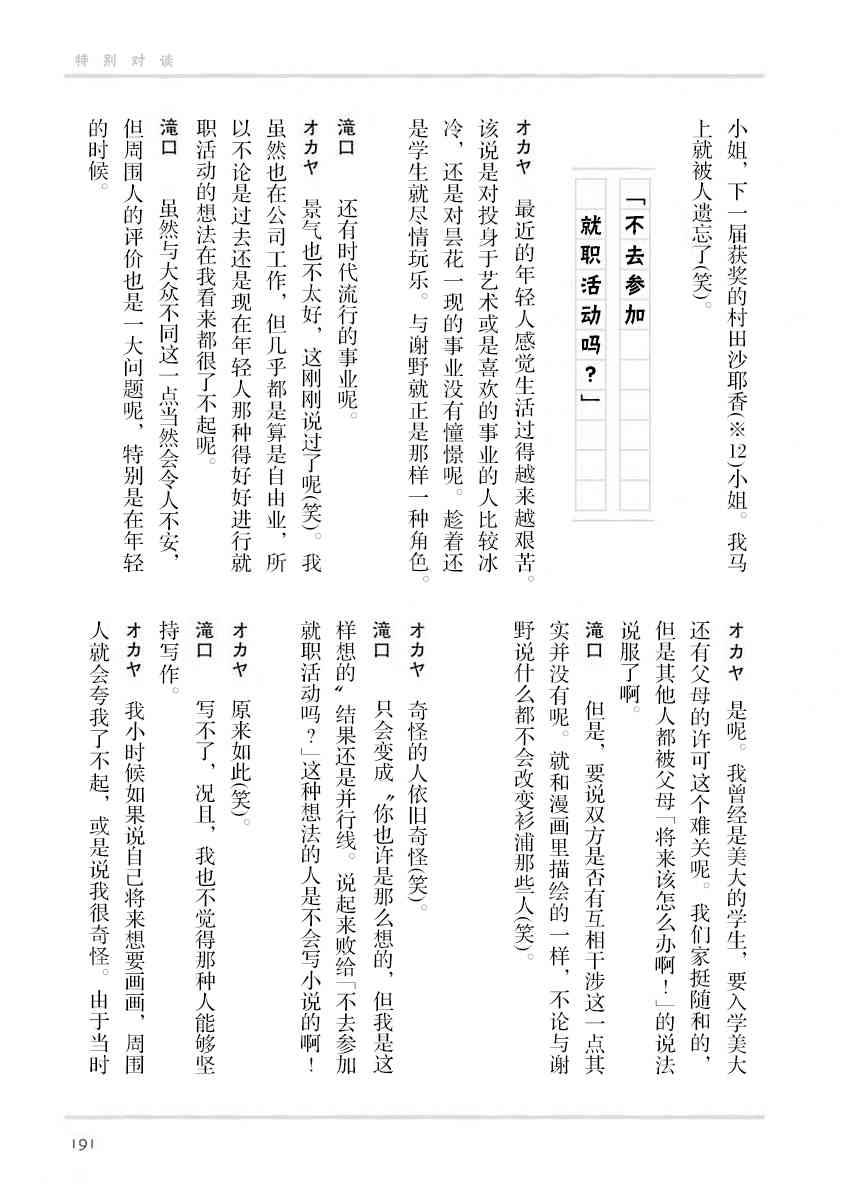 特别对谈
小姐，下一届获奖的村田沙耶香(※12)小姐。我马
上就被人遗忘了(笑)。
「不去参加
就职活动吗？」
オカヤ　最近的年轻人感觉生活过得越来越艰苦。
该说是对投身于艺术或是喜欢的事业的人比较冰
冷，还是对昙花一现的事业没有憧憬呢。趁着还
是学生就尽情玩乐。与谢野就正是那样一种角色。
滝口　还有时代流行的事业呢。
オカヤ　景气也不太好，这刚刚说过了呢(笑)。我
虽然也在公司工作，但几乎都是算是自由业，所
以不论是过去还是现在年轻人那种得好好进行就
职活动的想法在我看来都很了不起呢。
滝口　虽然与大众不同这一点当然会令人不安，
但周围人的评价也是一大问题呢，特别是在年轻
的时候。
オカヤ　是呢。我曾经是美大的学生，要入学美大
还有父母的许可这个难关呢。我们家挺随和的，
但是其他人都被父母「将来该怎么办啊！」的说法
说服了啊。
滝口　但是，要说双方是否有互相干涉这一点其
实并没有呢。就和漫画里描绘的一样，不论与谢
野说什么都不会改变衫浦那些人(笑)。
オカヤ　奇怪的人依旧奇怪(笑)。
滝口　只会变成〝你也许是那么想的，但我是这
样想的〞结果还是并行线。说起来败给「不去参加
就职活动吗？」这种想法的人是不会写小说的啊！
オカヤ　原来如此(笑)。
滝口　写不了，况且，我也不觉得那种人能够坚
持写作。
オカヤ　我小时候如果说自己将来想要画画，周围
人就会夸我了不起，或是说我很奇怪。由于当时
191